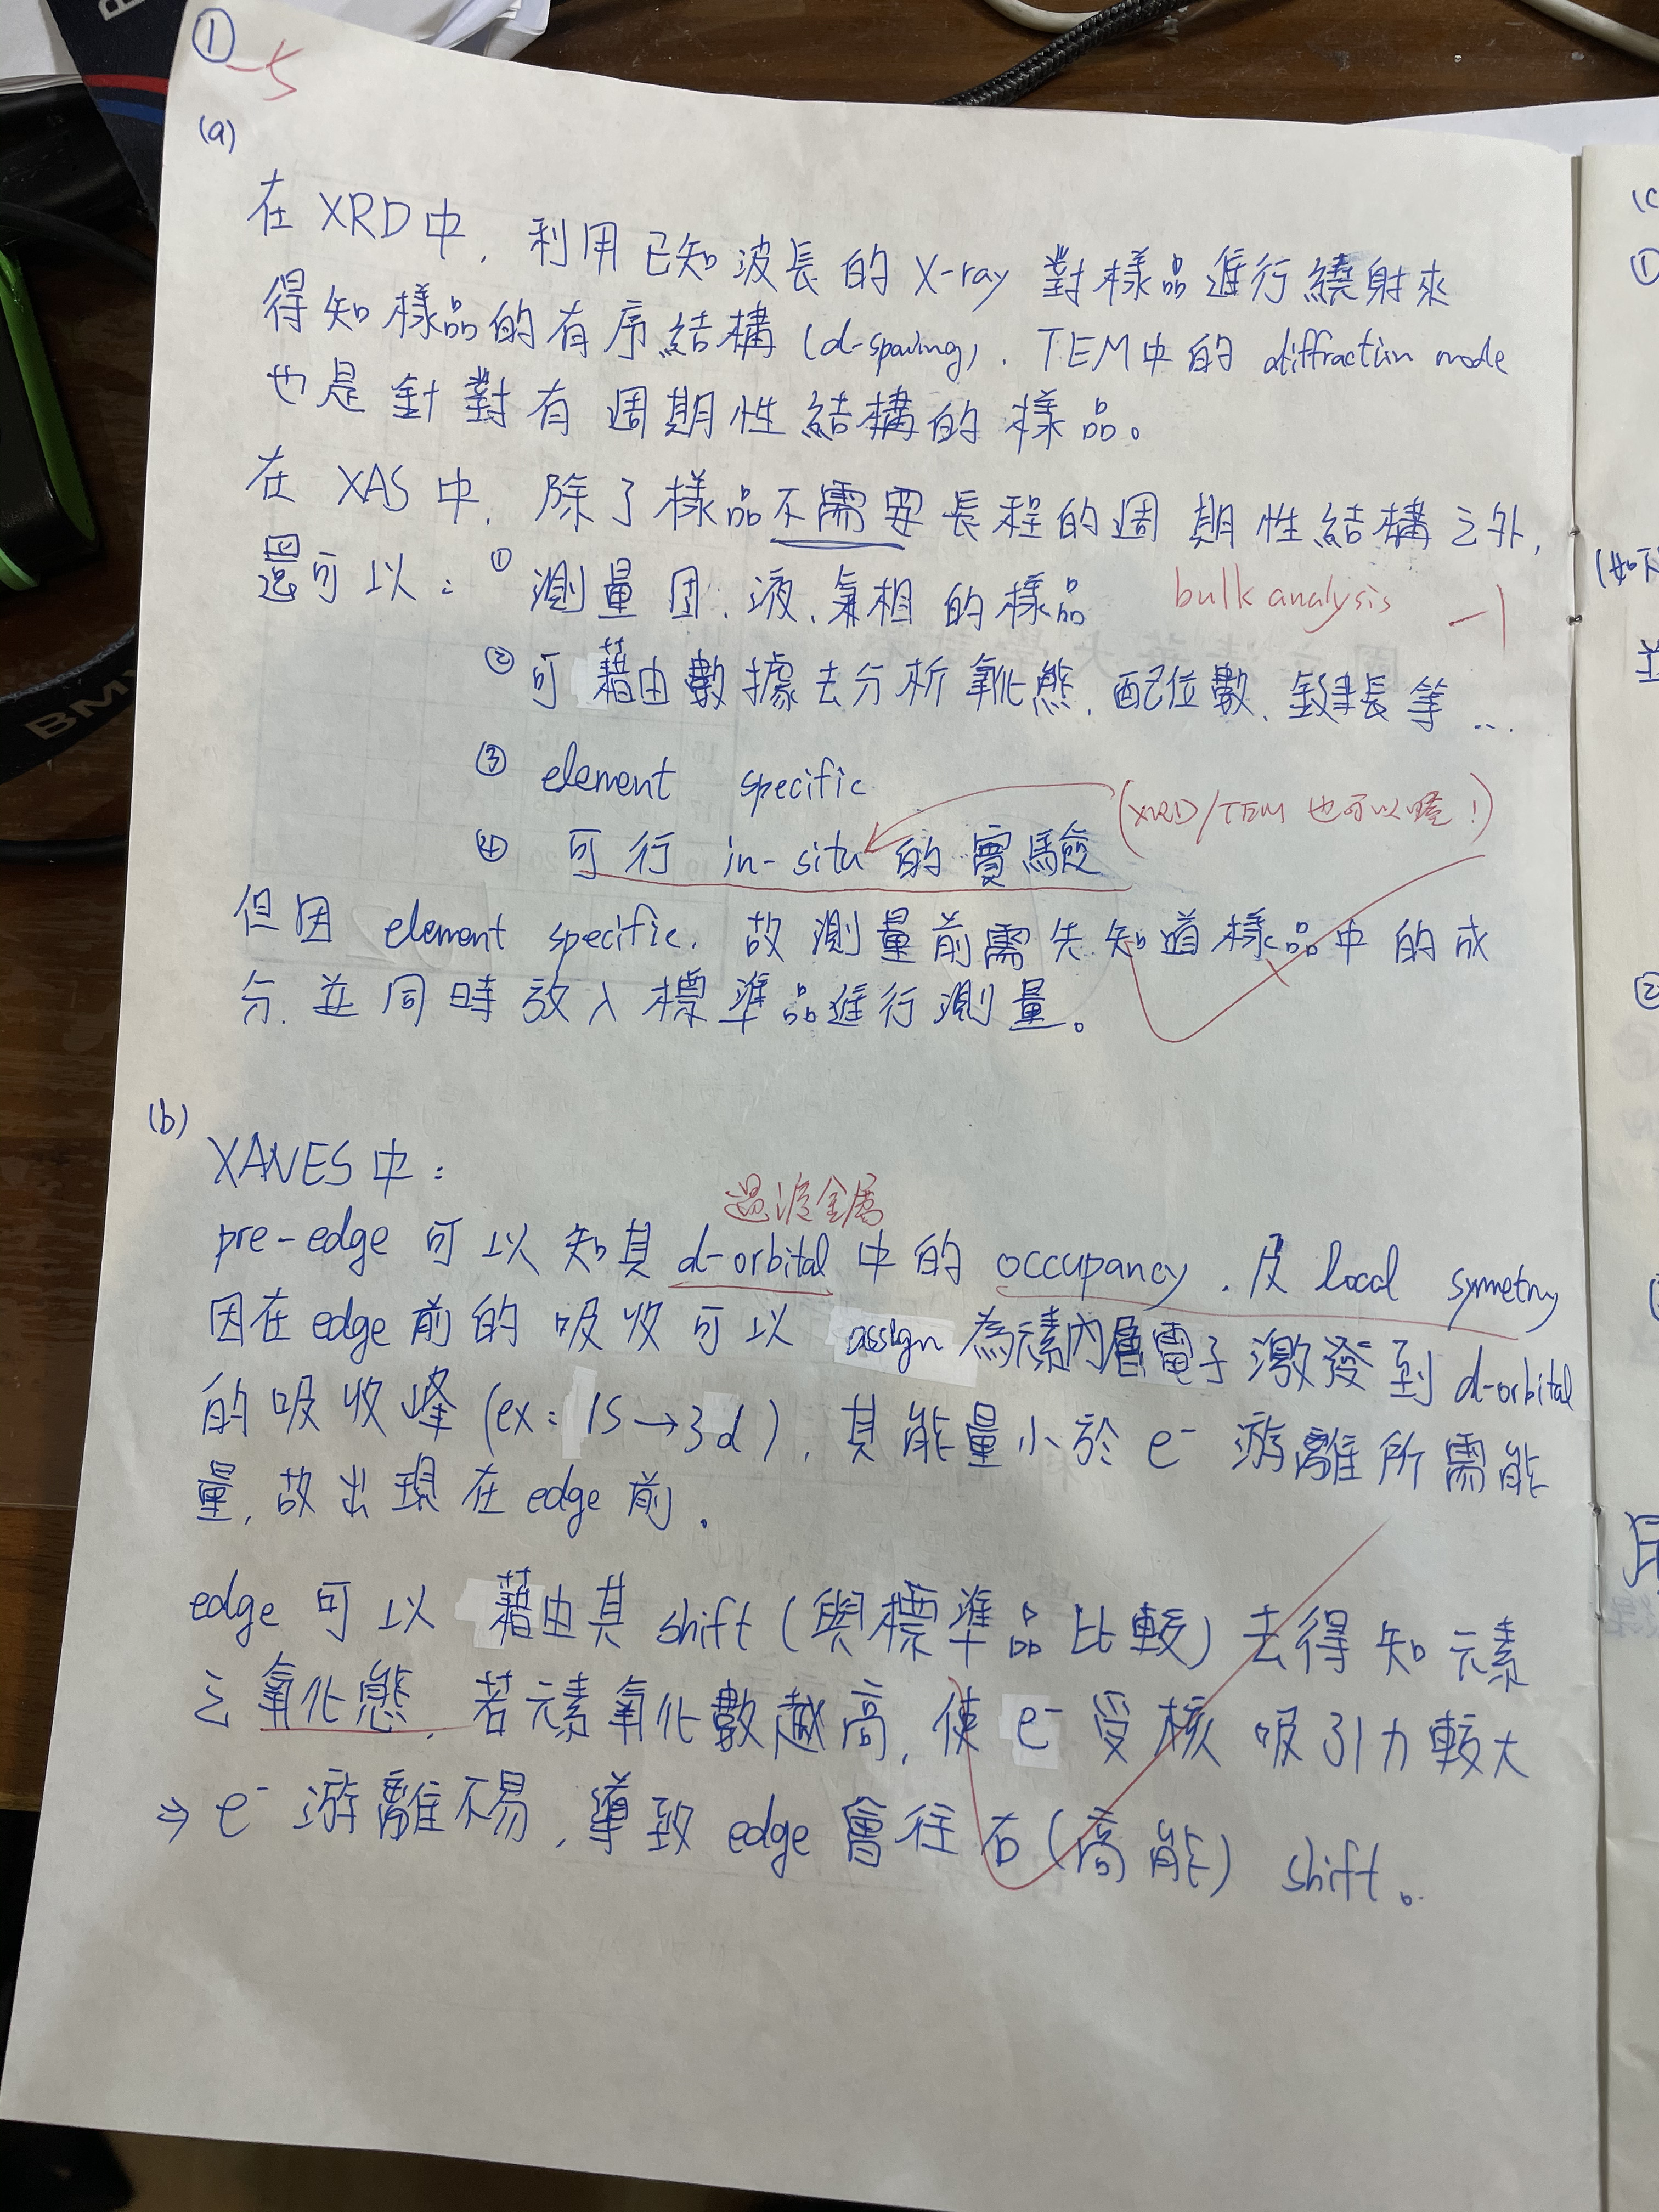 ①
-5
(a)
在 XRD 中, 利用已知波長的 X-ray 對樣品進行繞射來
得知樣品的有序結構 (d-spacing). TEM中的 diffraction mode
也是針對有週期性結構的樣品。
在 XAS 中, 除了樣品不需要長程的週期性結構之外,
還可以: ① 測量固、液、氣相的樣品
bulk analysis -1
② 可藉由數據去分析氧化態、配位數、鍵長等...
③ element specific
(XRD/TEM 也可以喔!)
④ 可行 in-situ 的實驗
但因 element specific. 故測量前需先知道樣品中的成
分. 並同時放入標準品進行測量。
(b)
XANES 中:
過渡金屬
pre-edge 可以知其 d-orbital 中的 occupancy. 及 local symetry
因在 edge 前的吸收可以 assign 為元素內層電子激發到 d-orbital
的吸收峰 (ex: 1s→3d), 其能量小於 e⁻ 游離所需能
量, 故出現在 edge 前.
edge 可以藉由其 shift (與標準品比較) 去得知元素
之氧化態, 若元素氧化數越高, 使 e⁻ 受核吸引力較大
⇒ e⁻ 游離不易, 導致 edge 會往右(高能) shift。
BMW
①
②